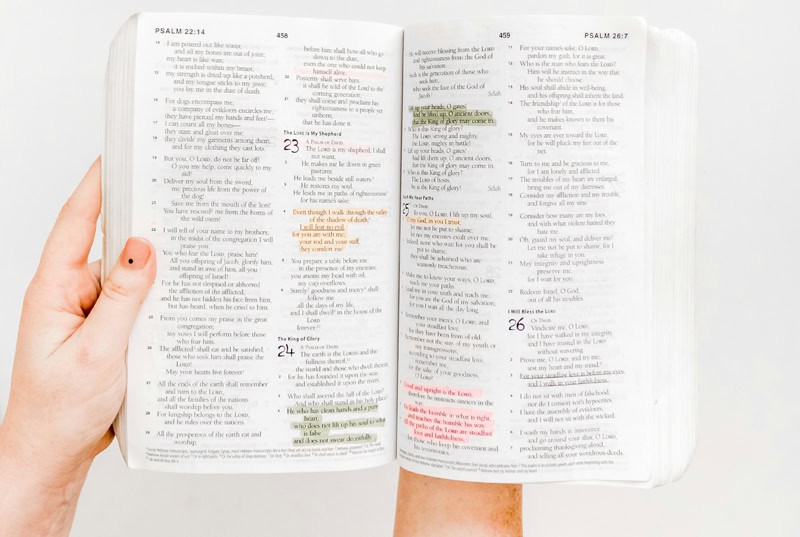 PSALM 22:14
458
14 I am poured out like water,
and all my bones are out of joint;
my heart is like wax;
it is melted within my breast;
15 my strength is dried up like a potsherd,
and my tongue sticks to my jaws;
you lay me in the dust of death.
16 For dogs encompass me;
a company of evildoers encircles me;
they have pierced my hands and feet—
17 I can count all my bones—
they stare and gloat over me;
18 they divide my garments among them,
and for my clothing they cast lots.
19 But you, O LORD, do not be far off!
O you my help, come quickly to my
aid!
20 Deliver my soul from the sword,
my precious life from the power of
the dog!
21 Save me from the mouth of the lion!
You have rescued me from the horns of
the wild oxen!
22 I will tell of your name to my brothers;
in the midst of the congregation I will
praise you:
You who fear the LORD, praise him!
All you offspring of Jacob, glorify him,
and stand in awe of him, all you
offspring of Israel!
For he has not despised or abhorred
the affliction of the afflicted,
and he has not hidden his face from him,
but has heard, when he cried to him.
25 From you comes my praise in the great
congregation;
my vows I will perform before those
who fear him.
26 The afflicted shall eat and be satisfied;
those who seek him shall praise the
LORD!
May your hearts live forever!
27 All the ends of the earth shall remember
and turn to the LORD,
and all the families of the nations
shall worship before you.
28 For kingship belongs to the LORD,
and he rules over the nations.
29 All the prosperous of the earth eat and
worship;
before him shall bow all who go
down to the dust,
even the one who could not keep
himself alive.
30 Posterity shall serve him;
it shall be told of the Lord to the
coming generation;
31 they shall come and proclaim his
righteousness to a people yet
unborn,
that he has done it.
The LORD Is My Shepherd
23 A PSALM OF DAVID.
The LORD is my shepherd; I shall
not want.
2 He makes me lie down in green
pastures.
He leads me beside still waters.
3 He restores my soul.
He leads me in paths of righteousness
for his name's sake.
4 Even though I walk through the valley
of the shadow of death,
I will fear no evil,
for you are with me;
your rod and your staff,
they comfort me.
5 You prepare a table before me
in the presence of my enemies;
you anoint my head with oil;
my cup overflows.
6 Surely goodness and mercy shall
follow me
all the days of my life,
and I shall dwell in the house of the
LORD
forever.
The King of Glory
24 A PSALM OF DAVID.
The earth is the LORD's and the
fullness thereof,
the world and those who dwell therein,
2 for he has founded it upon the seas
and established it upon the rivers.
3 Who shall ascend the hill of the LORD?
And who shall stand in his holy place?
4 He who has clean hands and a pure
heart,
who does not lift up his soul to what
is false
and does not swear deceitfully.
459
PSALM 26:7
He will receive blessing from the LORD
and righteousness from the God of
his salvation.
Such is the generation of those who
seek him,
who seek the face of the God of
Jacob.
Selah
Lift up your heads, O gates!
And be lifted up, O ancient doors,
that the King of glory may come in.
Who is this King of glory?
The LORD, strong and mighty,
the LORD, mighty in battle!
Lift up your heads, O gates!
And lift them up, O ancient doors,
that the King of glory may come in.
Who is this King of glory?
The LORD of hosts,
he is the King of glory!
Selah
Me Your Paths
25 OF DAVID.
To you, O LORD, I lift up my soul.
O my God, in you I trust;
let me not be put to shame;
let not my enemies exult over me.
Indeed, none who wait for you shall be
put to shame;
they shall be ashamed who are
wantonly treacherous.
Make me to know your ways, O LORD;
teach me your paths.
Lead me in your truth and teach me,
for you are the God of my salvation;
for you I wait all the day long.
Remember your mercy, O LORD, and
your steadfast love,
for they have been from of old.
Remember not the sins of my youth or
my transgressions;
according to your steadfast love
remember me,
for the sake of your goodness,
O LORD!
Good and upright is the LORD;
therefore he instructs sinners in the
way.
He leads the humble in what is right,
and teaches the humble his way.
All the paths of the LORD are steadfast
love and faithfulness,
for those who keep his covenant and
his testimonies.
11 For your name's sake, O LORD,
pardon my guilt, for it is great.
12 Who is the man who fears the LORD?
Him will he instruct in the way that
he should choose.
13 His soul shall abide in well-being,
and his offspring shall inherit the land.
14 The friendship of the LORD is for those
who fear him,
and he makes known to them his
covenant.
15 My eyes are ever toward the LORD,
for he will pluck my feet out of the
net.
16 Turn to me and be gracious to me,
for I am lonely and afflicted.
17 The troubles of my heart are enlarged;
bring me out of my distresses.
18 Consider my affliction and my trouble,
and forgive all my sins.
19 Consider how many are my foes,
and with what violent hatred they
hate me.
20 Oh, guard my soul, and deliver me!
Let me not be put to shame, for I
take refuge in you.
21 May integrity and uprightness
preserve me,
for I wait for you.
22 Redeem Israel, O God,
out of all his troubles.
I Will Bless the LORD
26 OF DAVID.
Vindicate me, O LORD,
for I have walked in my integrity,
and I have trusted in the LORD
without wavering.
2 Prove me, O LORD, and try me;
test my heart and my mind.
3 For your steadfast love is before my eyes,
and I walk in your faithfulness.
4 I do not sit with men of falsehood,
nor do I consort with hypocrites.
5 I hate the assembly of evildoers,
and I will not sit with the wicked.
6 I wash my hands in innocence
and go around your altar, O LORD,
7 proclaiming thanksgiving aloud,
and telling all your wondrous deeds.